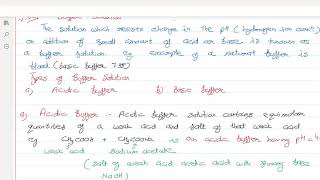 Buffer Solution
The solution which resists change in the pH (hydrogen ion conc")
on addition of small amount of acid or base is known as
a buffer solution eg example of a natural buffer is
blood (basic buffer 7.35)
Types of Buffer Solution
a) Acidic Buffer b) basic buffer
a) Acidic Buffer - Acidic buffer solution contains equimolar
quantities of a weak acid and salt of that weak acid
eg CH3COOH + CH3COONa is an acidic buffer having pH = 4.
weak acid sodium acetate
(salt of weak acid acetic acid with strong base
NaOH)